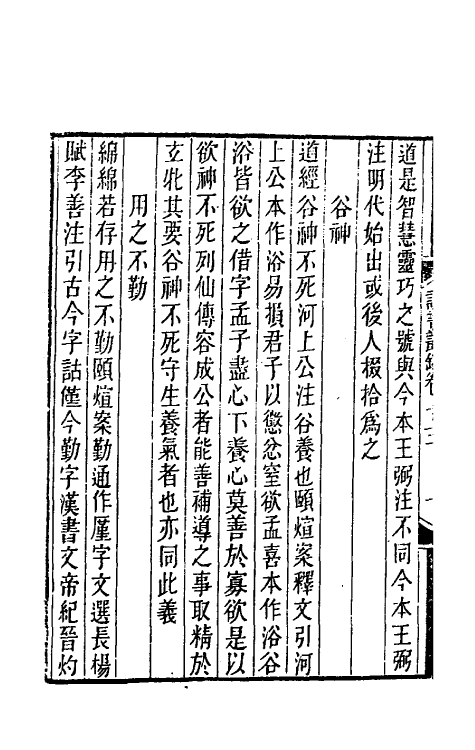 道是智慧靈巧之號與今本王弼注不同今本王弼
注明代始出或後人掇拾爲之
谷神
道經谷神不死河上公注谷養也頤煊案釋文引河
上公本作浴易損君子以懲忿窒欲孟喜本作浴谷
浴皆欲之借字孟子盡心下養心莫善於寡欲是以
欲神不死列仙傳容成公者能善補導之事取精於
玄牝其要谷神不死守生養氣者也亦同此義
用之不勤
綿綿若存用之不勤頤煊案勤通作廑字文選長楊
賦李善注引古今字詁僅今勤字漢書文帝紀晉灼